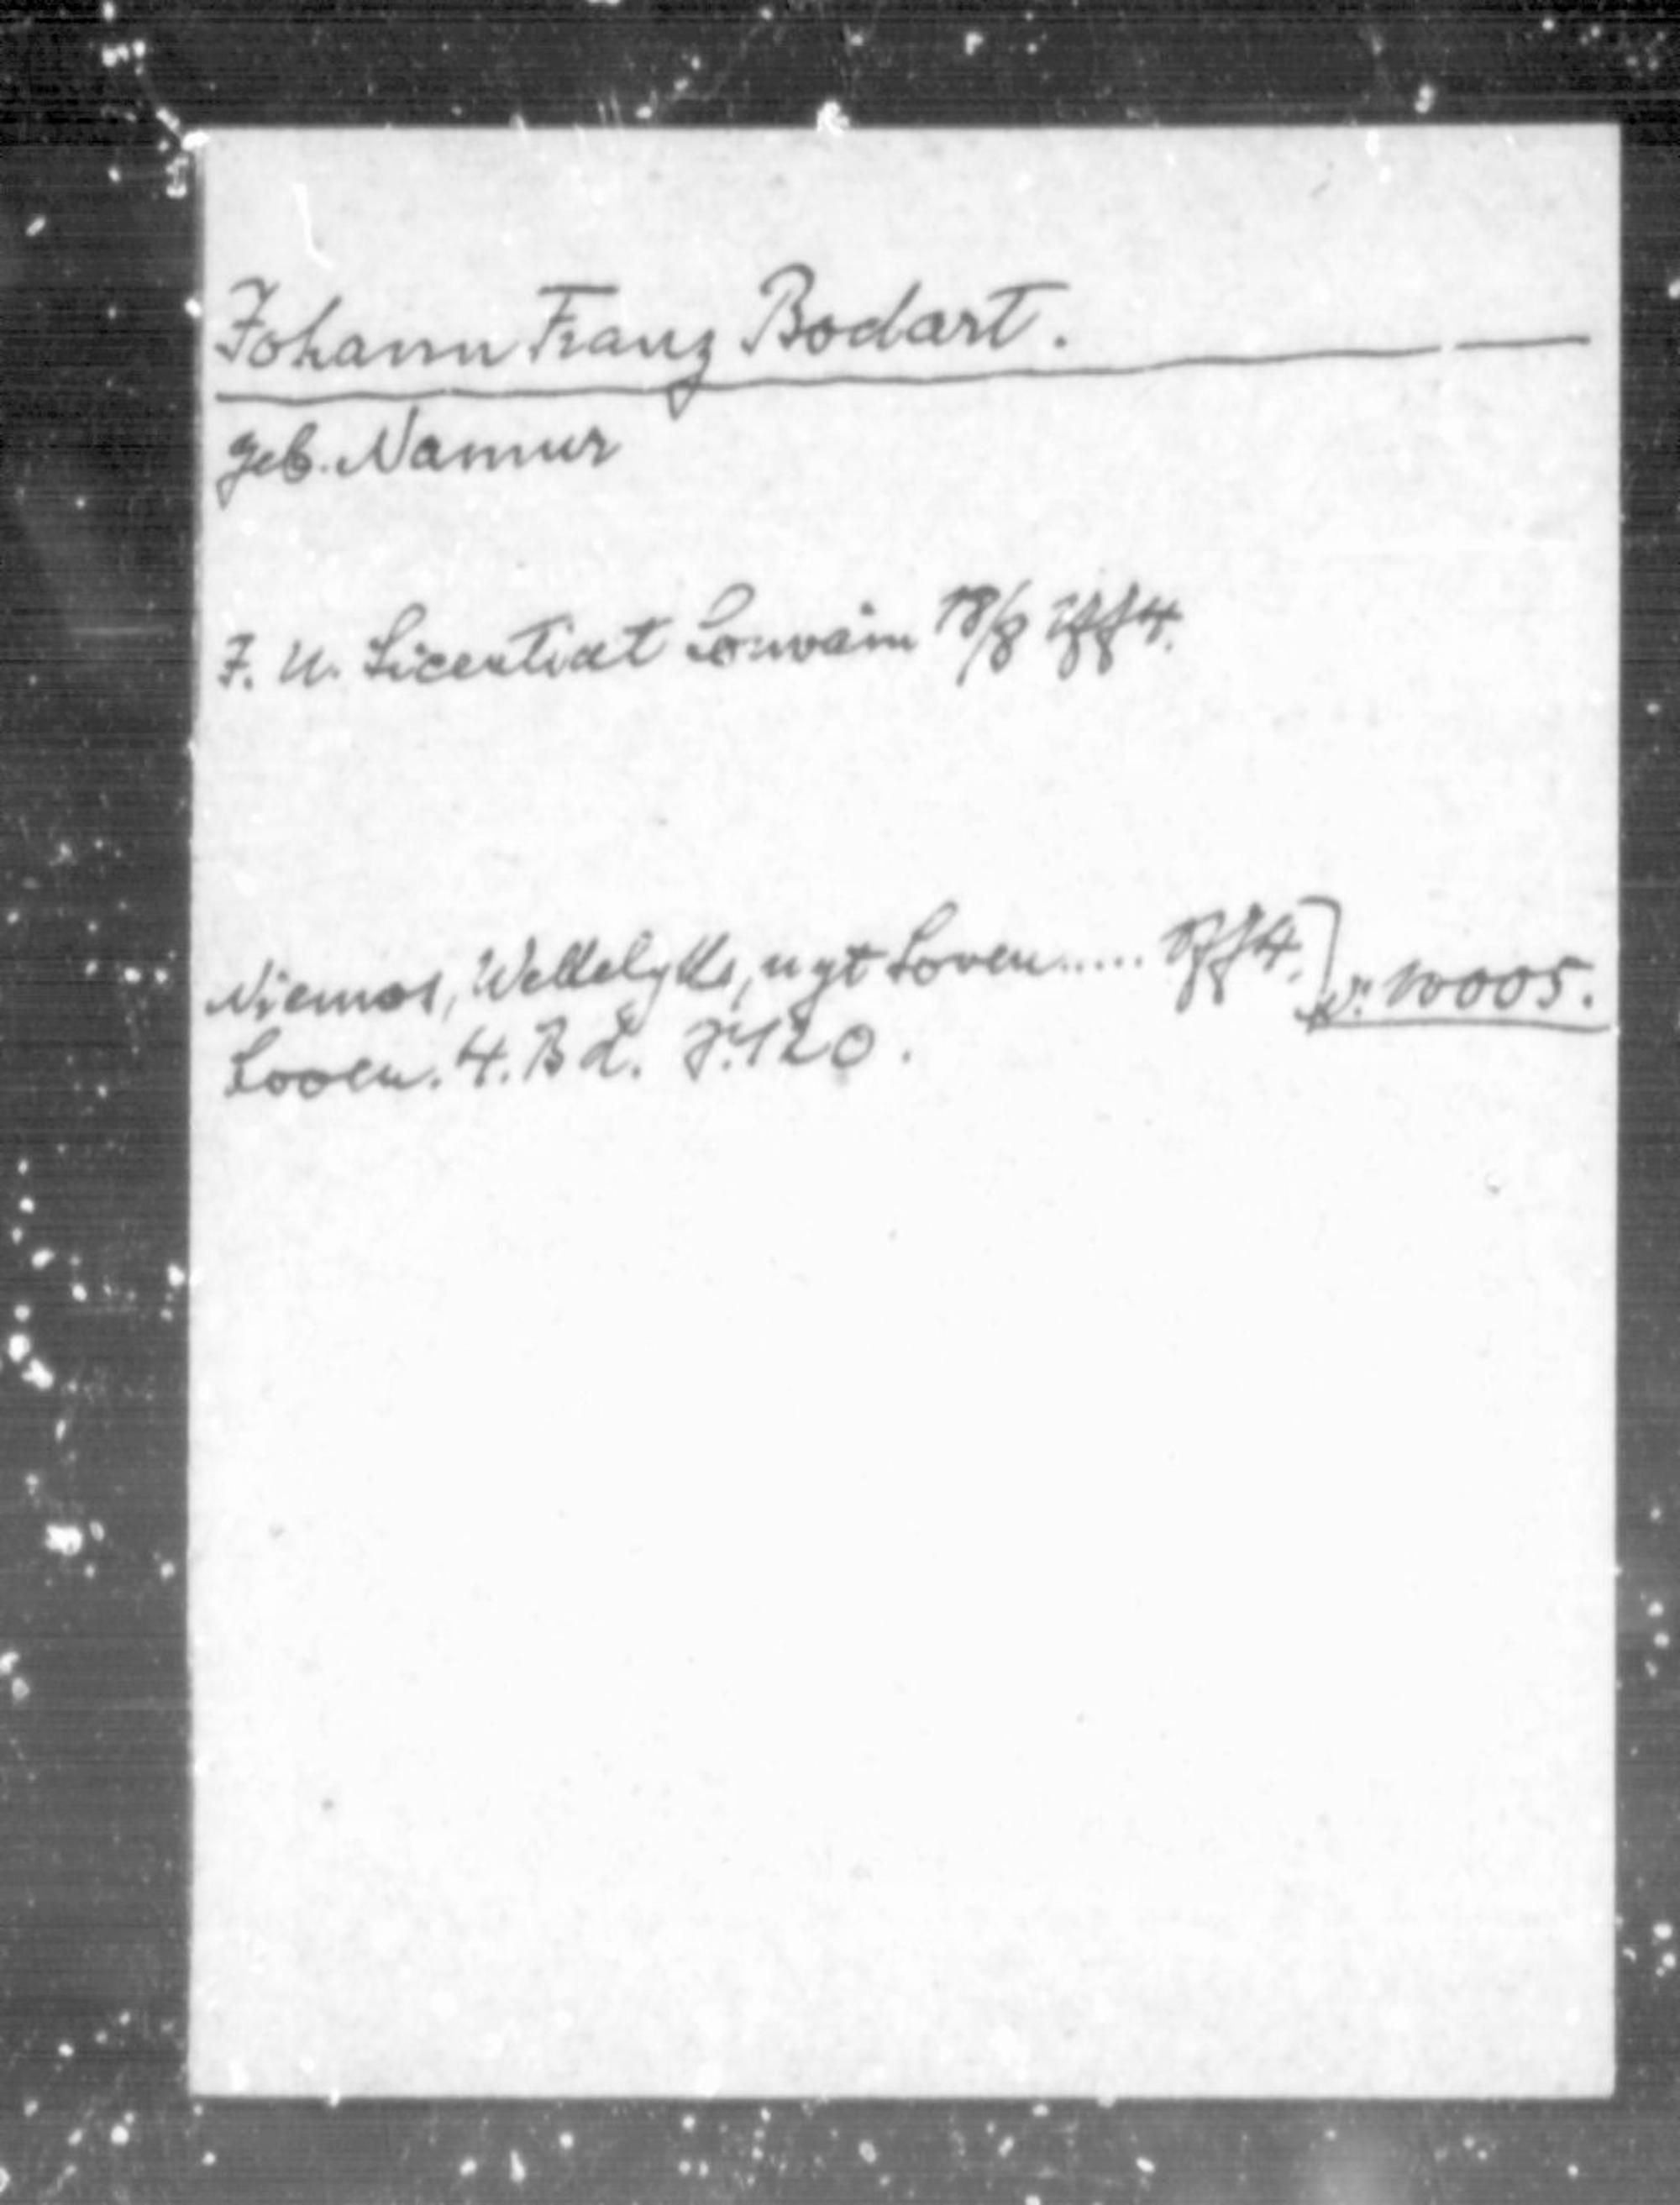 Johann Franz Bodart.
geb. Namur
J. U. Licentiat Louvain 18/8 1774.
Niemos, Wellelykls, uyt Loven..... 1774.} v: 10005.
Loven. 4. Bd. J. 120.